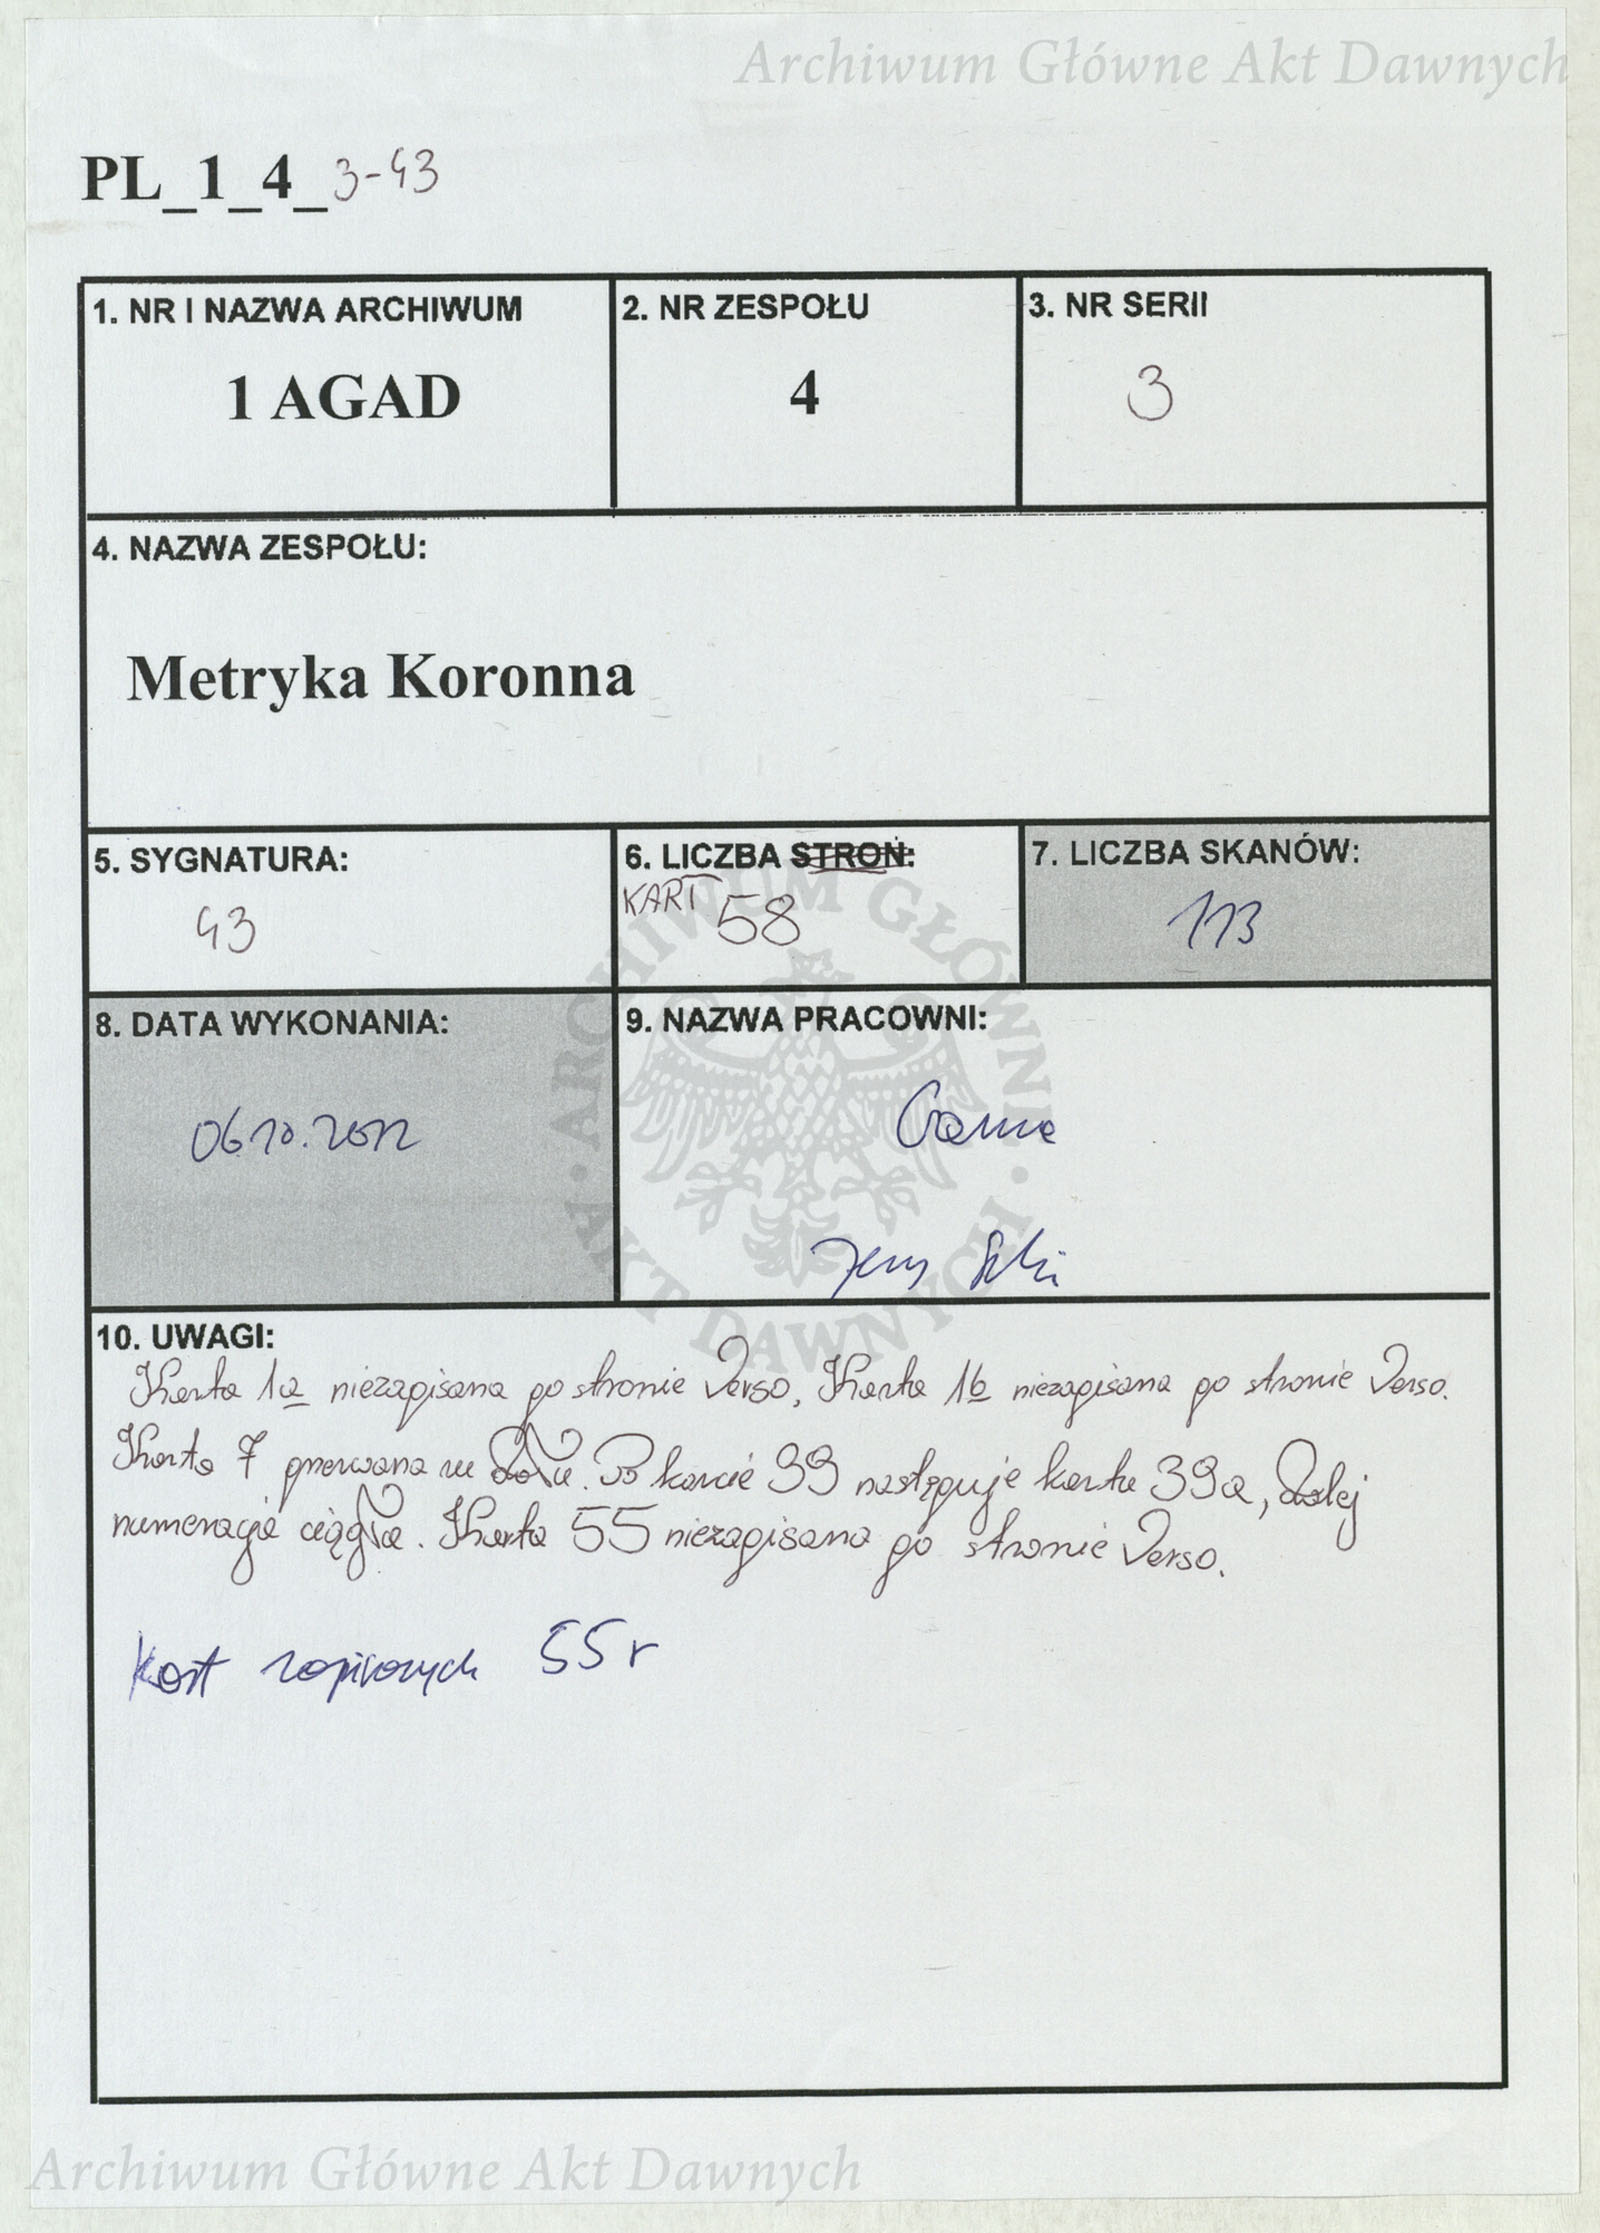 Archiwum Główne Akt Dawnych
PL_1_4_3-43
1. NR I NAZWA ARCHIWUM
1 AGAD
2. NR ZESPOŁU
4
3. NR SERII
3
4. NAZWA ZESPOŁU:
Metryka Koronna
5. SYGNATURA:
43
6. LICZBA STRON:
KART 58
7. LICZBA SKANÓW:
113
8. DATA WYKONANIA:
06.10.2012
9. NAZWA PRACOWNI:
Jerzy
ARCHIWUM GŁÓWNE · AKT DAWNYCH ·
10. UWAGI:
Karta 1a niezapisana po stronie Verso, Karta 1b niezapisana po stronie Verso.
Karta 7 przerwana na dole. Po karcie 39 następuje karta 39a, dalej
numeracja ciągła. Karta 55 niezapisana po stronie Verso.
Kart zapisanych 55 r
Archiwum Główne Akt Dawnych